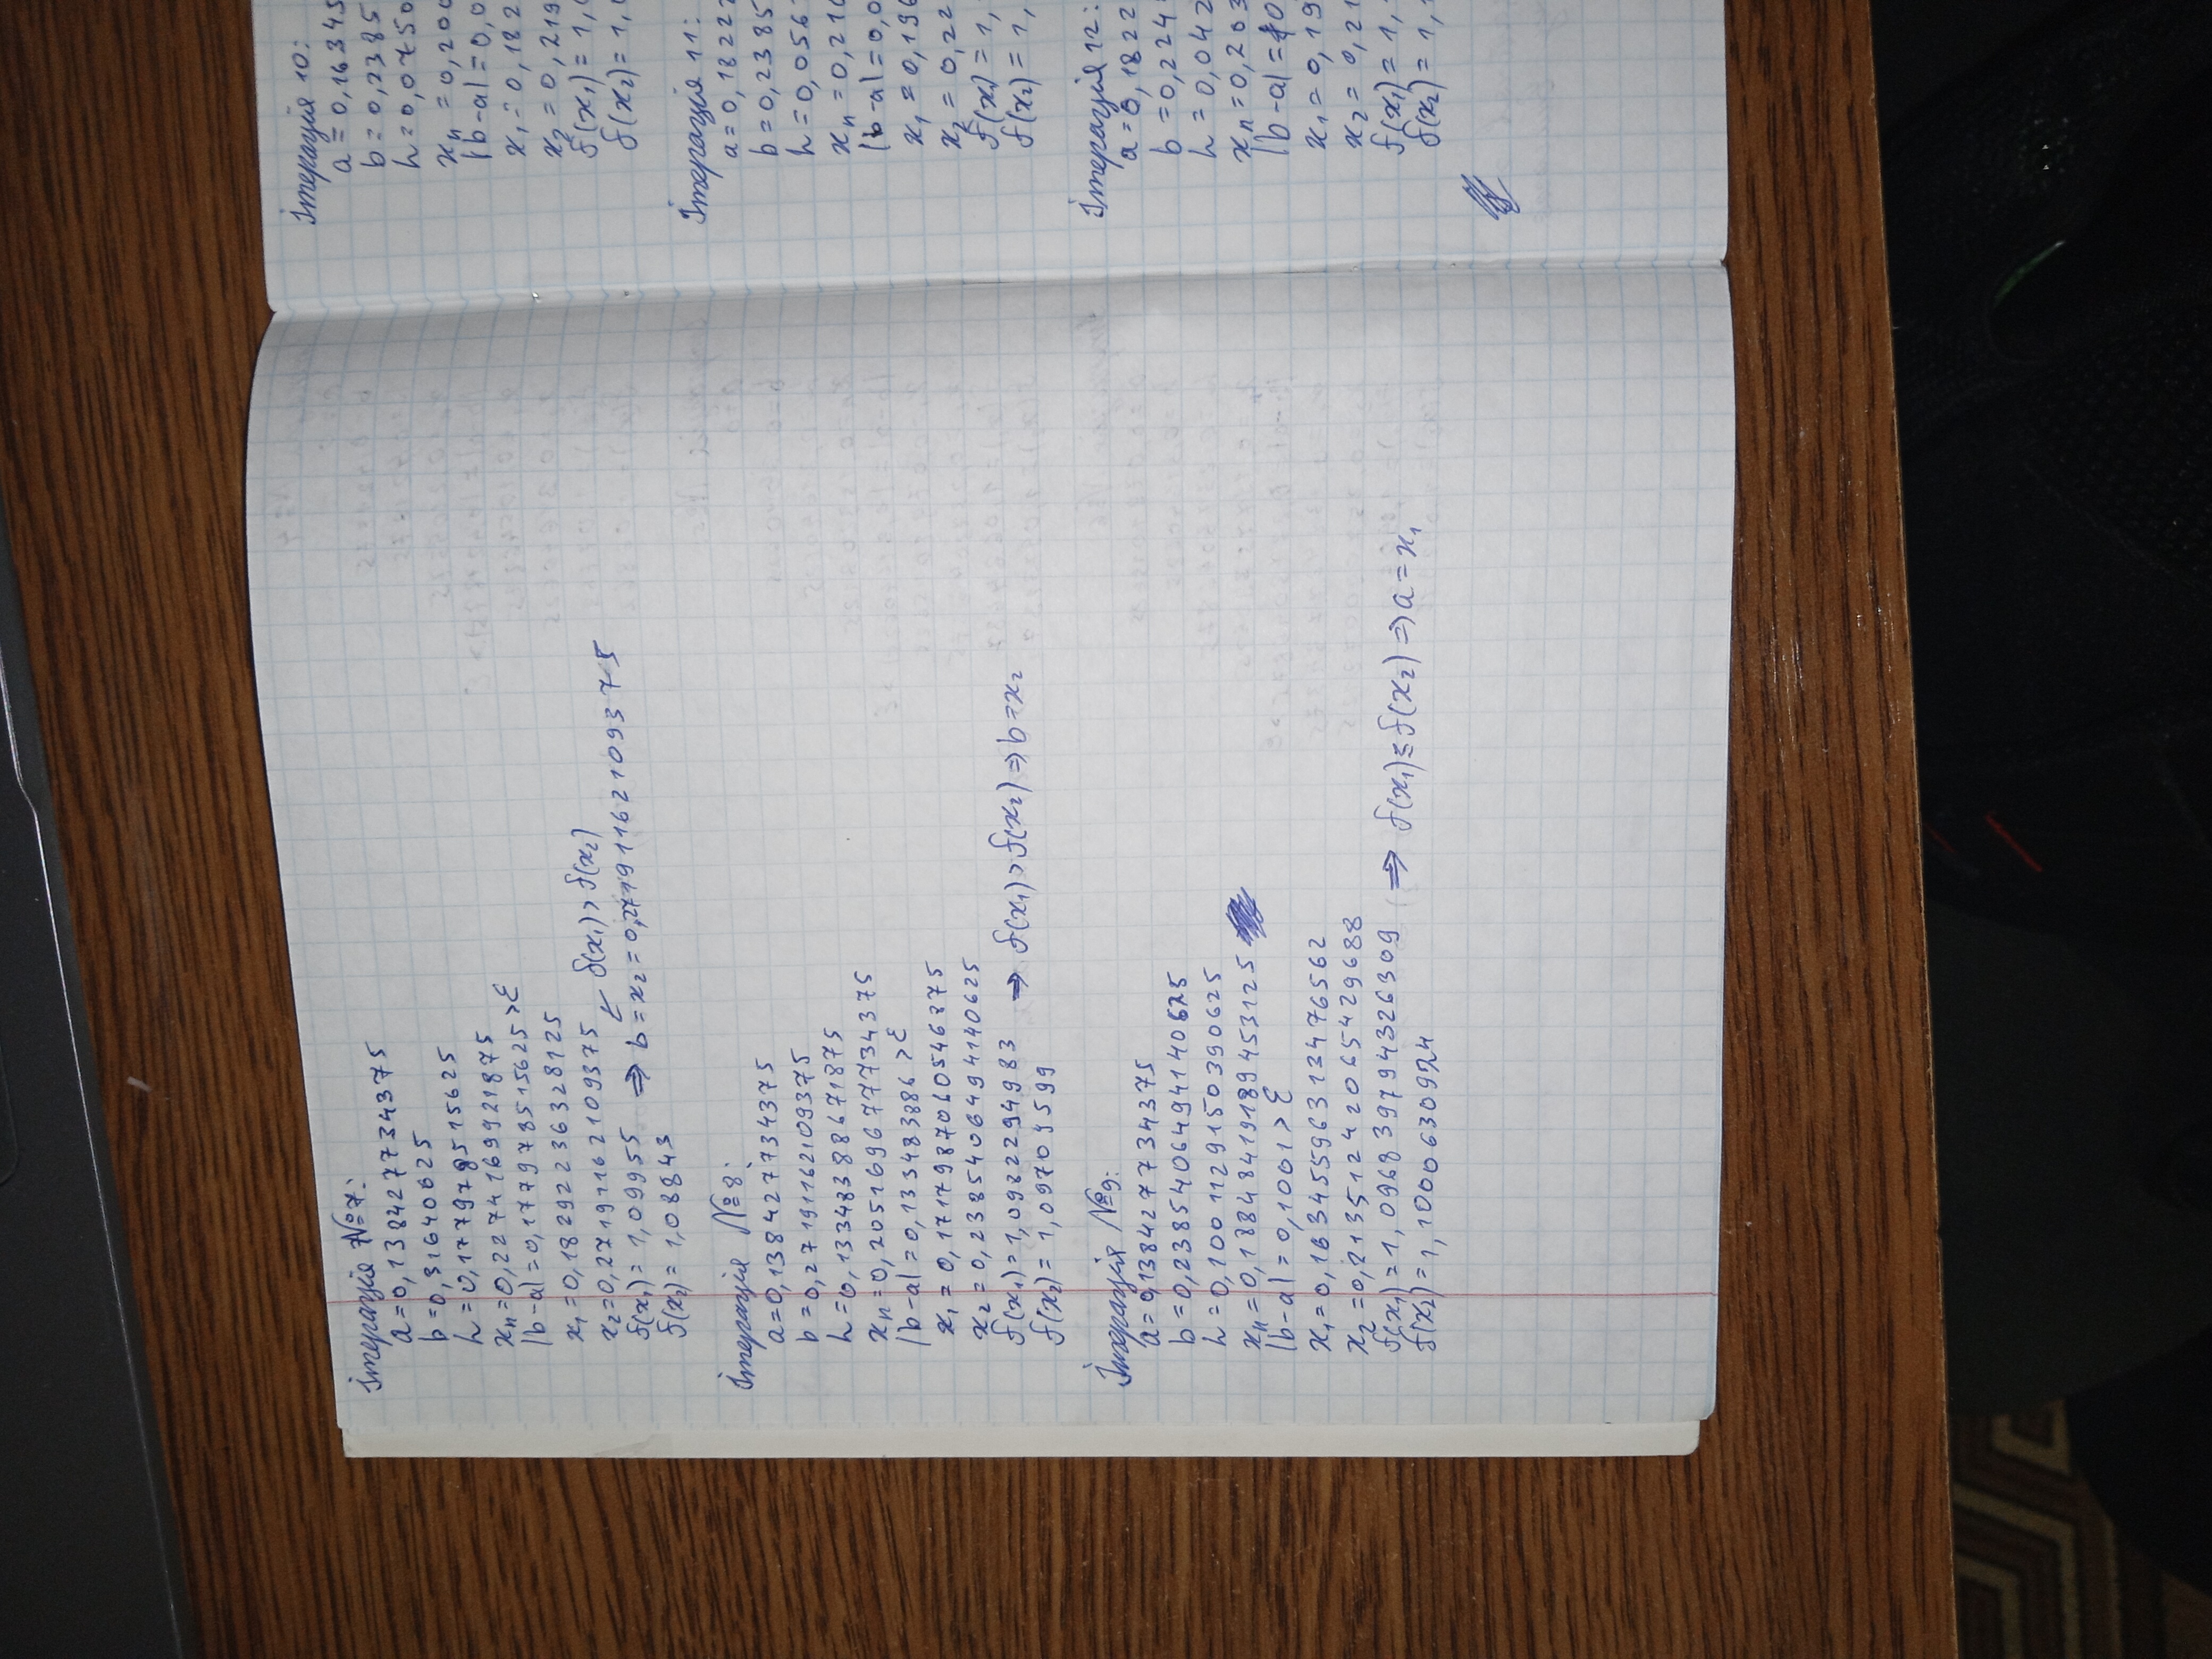 Ітерація №7:
a=0,138427734375
b=0,31640625
h=0,177978515625
xₙ=0,2274169921875
|b-a|=0,177978515625>ε
x₁=0,18292236328125
x₂=0,27191162109375 ⇐ f(x₁)>f(x₂)
f(x₁)=1,09955 ⇒ b=x₂=0,27191162109375
f(x₂)=1,08843
Ітерація №8:
a=0,138427734375
b=0,27191162109375
h=0,13348388671875
xₙ=0,205169677734375
|b-a|=0,13348388671875>ε
x₁=0,1717987060546875
x₂=0,2385406494140625
f(x₁)=1,09822294983 ⇒ f(x₁)>f(x₂)⇒b=x₂
f(x₂)=1,09704599
Ітерація №9:
a=0,138427734375
b=0,2385406494140625
h=0,1001129150390625
xₙ=0,18848419189453125
|b-a|=0,1001>ε
x₁=0,16345596313476562
x₂=0,21351242065429688
f(x₁)=1,096839794326309 ⇒ f(x₁)≤f(x₂)⇒a=x₁
f(x₂)=1,1000630924
Ітерація 10:
a=0,16345
b=0,2385
h=0,0750
xₙ=0,200
|b-a|=0,0
x₁=0,182
x₂=0,219
f(x₁)=1,
f(x₂)=1,
Ітерація 11:
a=0,1822
b=0,2385
h=0,056
xₙ=0,210
|b-a|=0,0
x₁=0,196
x₂=0,22
f(x₁)=1,
f(x₂)=1,
Ітерація 12:
a=0,1822
b=0,224
h=0,042
xₙ=0,203
|b-a|=0
x₁=0,19
x₂=0,21
f(x₁)=1,
f(x₂)=1,